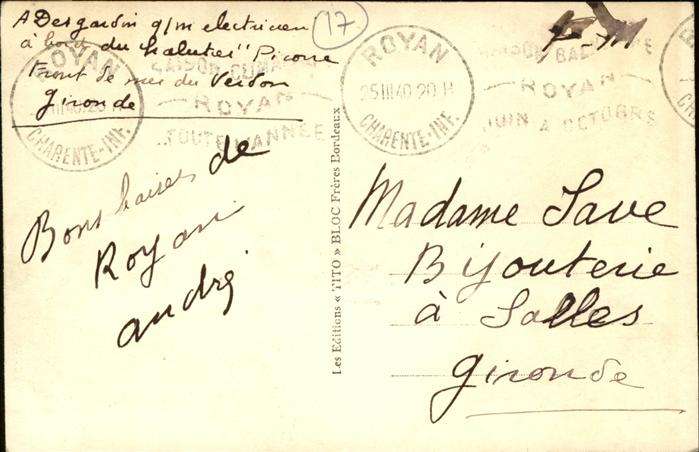 A Desgardin q/m electricien
à bord du chalutier "Picorre
Front de mer du Verdon
Gironde
17
F-M
ROYAN
CHARENTE-INF.
SAISON
ROYAN
TOUTE L'ANNÉE
ROYAN
25 III 40 20 H
CHARENTE-INF.
SAISON BALNEAIRE
ROYAN
JUIN A OCTOBRE
Bons baises de
Royan
andré.
Les Editions « TITO » BLOC Frères Bordeaux
Madame Save
Bijouterie
à Salles
Gironde